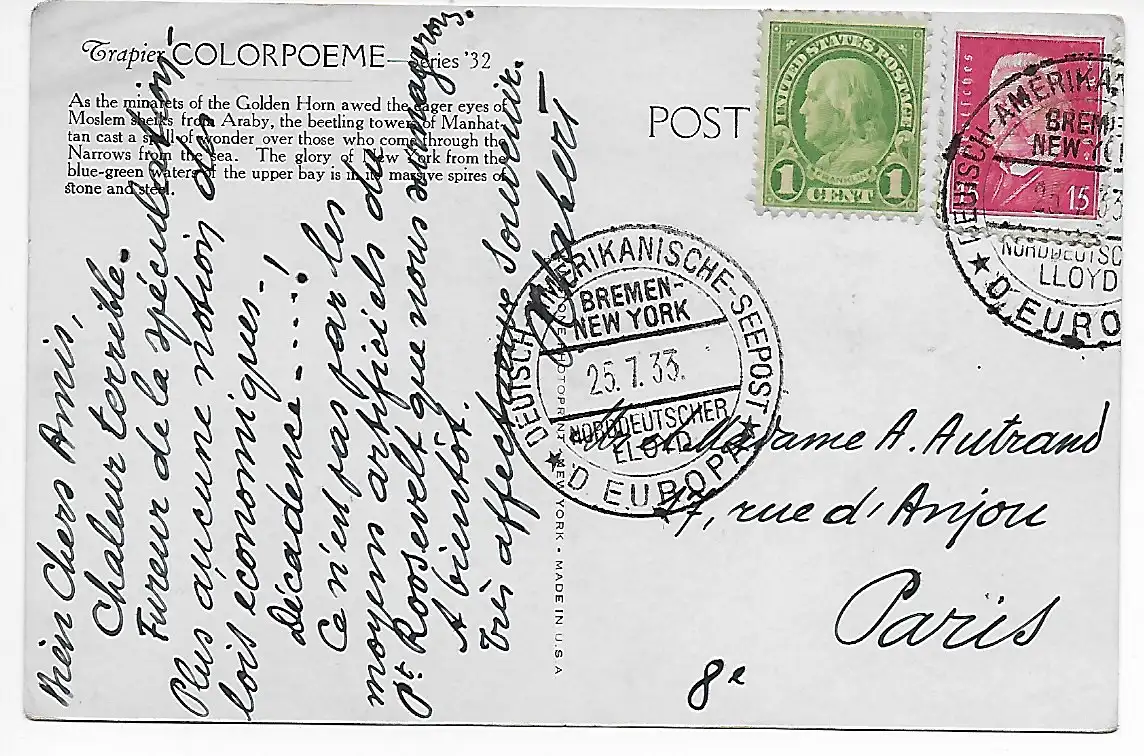 Trapier COLORPOEME—Series '32
As the minarets of the Golden Horn awed the eager eyes of
Moslem sheiks from Araby, the beetling towers of Manhat-
tan cast a spell of wonder over those who come through the
Narrows from the sea. The glory of New York from the
blue-green waters of the upper bay is in its massive spires of
stone and steel.
POST
UNITED STATES POSTAGE
FRANKLIN
1 CENT 1
15 15
DEUTSCH-AMERIKA
BREME
NEW YO
25 33
NORDDEUTSC
LLOYD
D. EURO
DEUTSCH-AMERIKANISCHE-SEEPOST
BREMEN-
NEW YORK
25.7.33.
NORDDEUTSCHER
LLOYD
D EUROPA
NEW YORK - MADE IN U.S.A
Mien Chers Amis,
Chaleur terrible.
Fureur de la spéculation
Plus aucune notion des
lois économiques.
Décadence----!
Ce n'est pas par les
moyens artificiels du
Pt Roosevelt que nous nagerons.
A bientôt.
Très affectueux Souvenir.
Madame A. Autrand
17, rue d'Anjou
Paris
8e